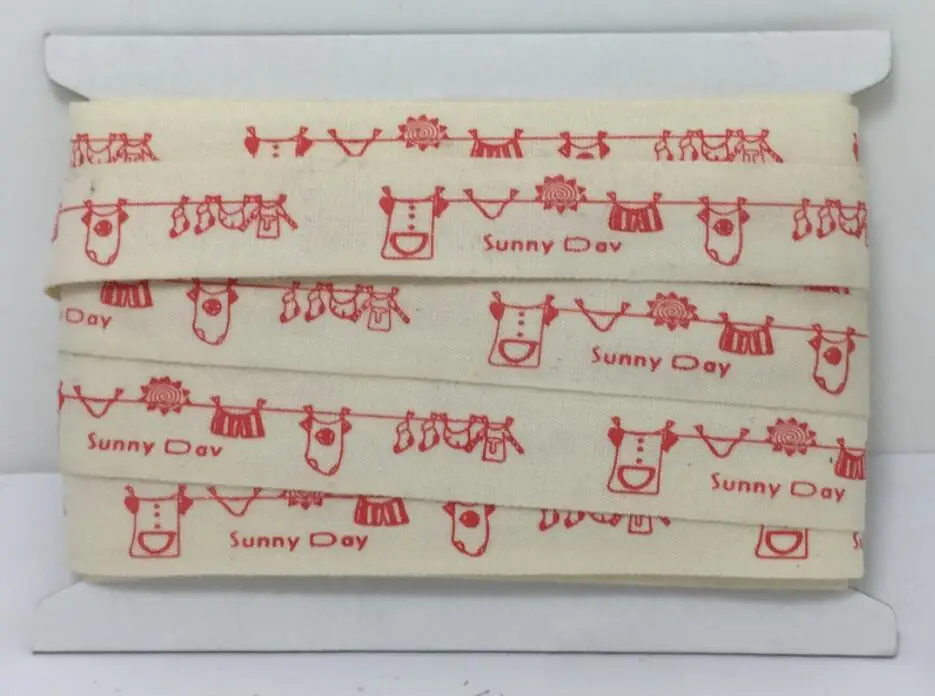 Sunny Day
Day
Sunny Day
Sunny Day
Sunny Day
Sunny Day